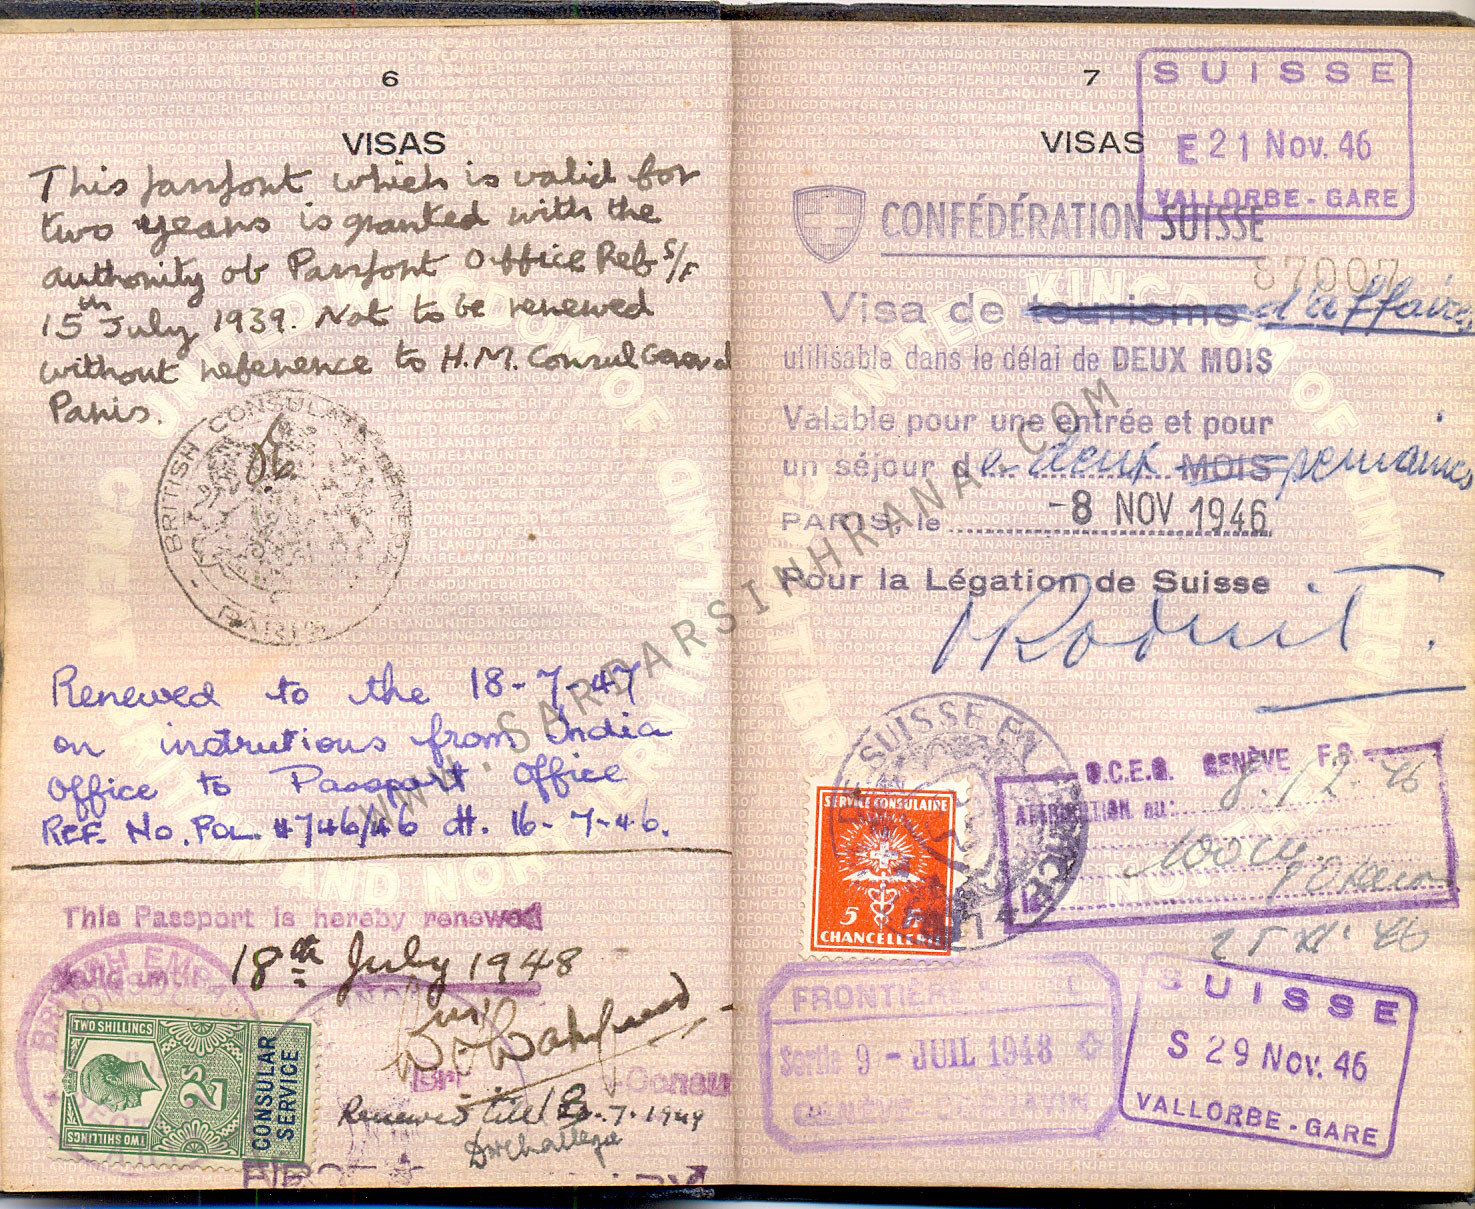 6
VISAS
This passport which is valid for
two years is granted with the
authority of Passport Office Ref S/F
15th July 1939. Not to be renewed
without reference to H.M. Consul General
Paris.
BRITISH CONSULATE-GENERAL
PARIS
Renewed to the 18-7-47
on instrutions from India
Office to Passport Office
REF. No. POL. 4746/46 dt. 16-7-46.
This Passport is hereby renewed
valid until 18th July 1948
TWO SHILLINGS
2s
TWO SHILLINGS
CONSULAR
SERVICE
Renewed till 18.7.1949
7
VISAS
SUISSE
E 21 Nov. 46
VALLORBE-GARE
CONFÉDÉRATION SUISSE
87007
Visa de tourisme d'affaires
utilisable dans le délai de DEUX MOIS
Valable pour une entrée et pour
un séjour de deux MOIS semaines
PARIS, le -8 NOV 1946
Pour la Légation de Suisse
SUISSE EN FRANCE
SERVICE CONSULAIRE
5 Fr
CHANCELLERIE
O.C.E.G. GENÈVE
ATTRIBUTION au: 8.12.46
25 XI. 46
FRONTIÈRE
Sortie 9 - JUIL 1948
GENÈVE
SUISSE
S 29 Nov. 46
VALLORBE-GARE
WWW.SARDARSINHRANA.COM